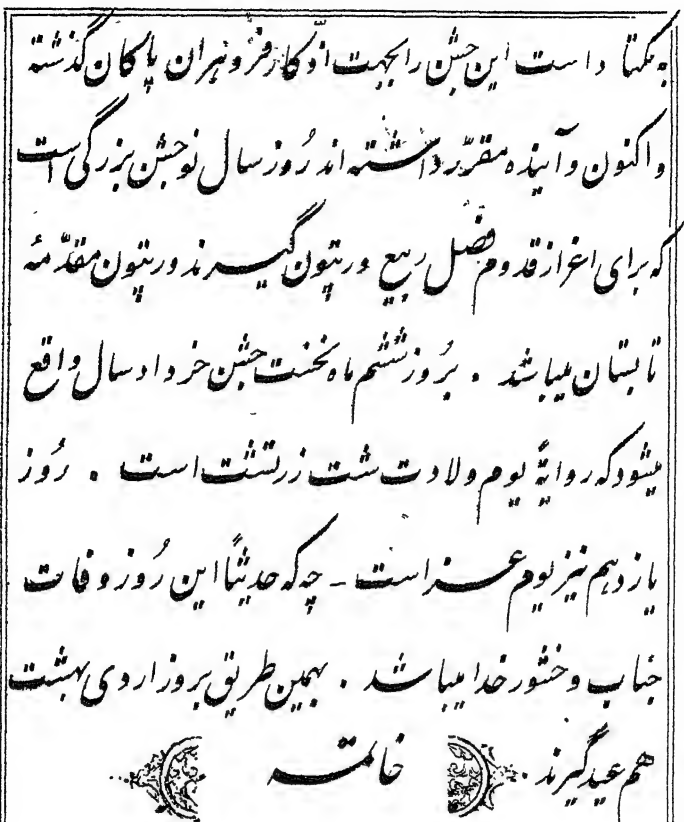 یکتا داست این جشن را بجهت اذکار فروهران پاکان گذشته
واکنون و آینده مقرّر داشته اند رُوز سال نو جشن بزرگی است
که برای اعزاز قدوم فصل ربیع ورپتون گیرند ورپتون مقدّمهٔ
تابستان میباشد . برُوز ششم ماه نخست جشن خرداد سال واقع
میشود که روایةً یوم ولادت شت زرتشت است . رُوز
یازدهم نیز یوم عـــزاست - چه که حدیثاً این رُوز وفات
جناب وخشور خدا میباشد . بهمین طریق بروز اردی بهشت
هم عید گیرند .
خاتمـــه